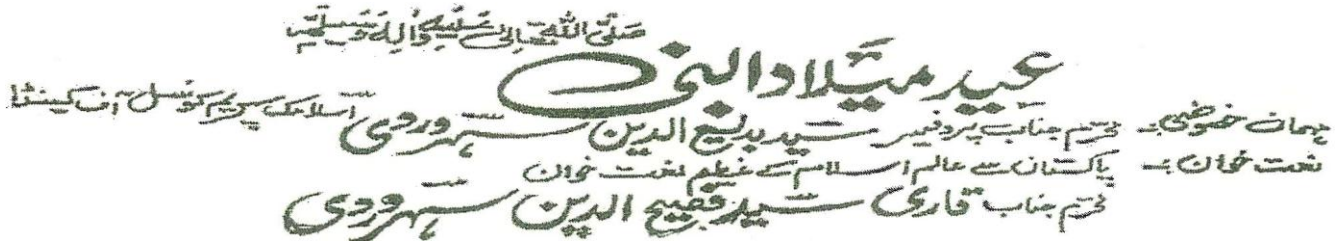 صَلَّی اللہُ تَعَالیٰ عَلَیْہِ وَاٰلِہٖ وَسَلَّم
عید میلاد النبی
مہمان خصوصی:۔ محترم جناب پروفیسر سید بدیع الدین سہروردی اسلامک سپریم کونسل آف کینیڈا
نعت خوان:۔ پاکستان سے عالم اسلام کے عظیم نعت خوان
محترم جناب قاری سید فصیح الدین سہروردی